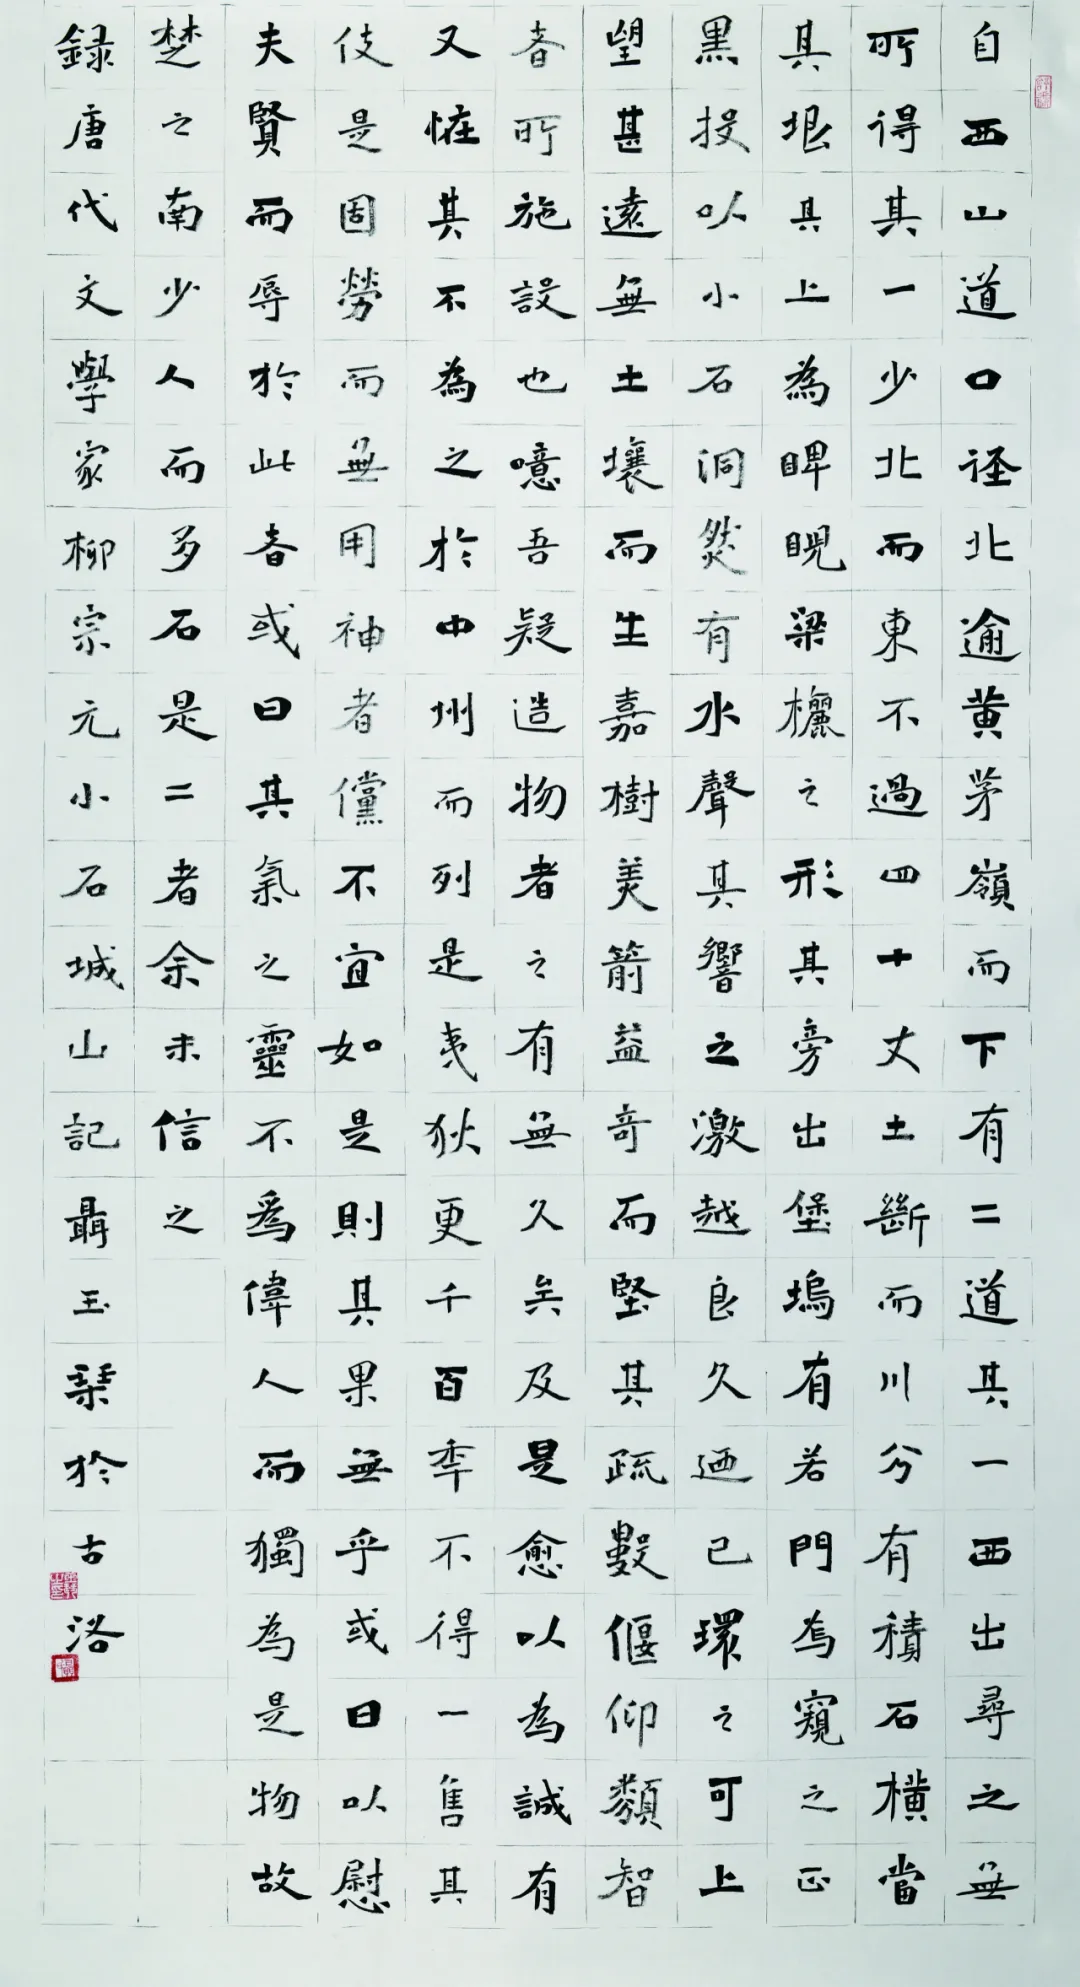 自西山道口径北逾黄茅嶺而下有二道其一西出尋之無
所得其一少北而東不過四十丈土斷而川分有積石橫當
其垠其上為睥睨梁欐之形其旁出堡塢有若門焉窺之正
黑投以小石洞然有水聲其響之激越良久迺已環之可上
望甚遠無土壤而生嘉樹美箭益奇而堅其疏數偃仰類智
者所施設也噫吾疑造物者之有無久矣及是愈以為誠有
又怪其不為之於中州而列是夷狄更千百秊不得一售其
伎是固勞而無用神者儻不宜如是則其果無乎或曰以慰
夫賢而辱於此者或曰其氣之靈不爲偉人而獨為是物故
楚之南少人而多石是二者余未信之
録唐代文學家柳宗元小石城山記聶玉琹於古洛